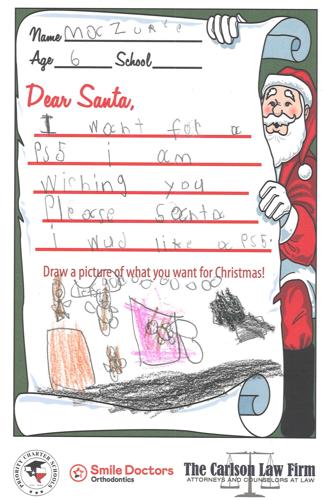 Name
Age 6 School
Dear Santa,
I want for a
PS5 i am
wishing you
Please santa
i wud like a PS5.
Draw a picture of what you want for Christmas!
PRIORITY CHARTER SCHOOLS
Smile Doctors
Orthodontics
The Carlson Law Firm
ATTORNEYS AND COUNSELORS AT LAW